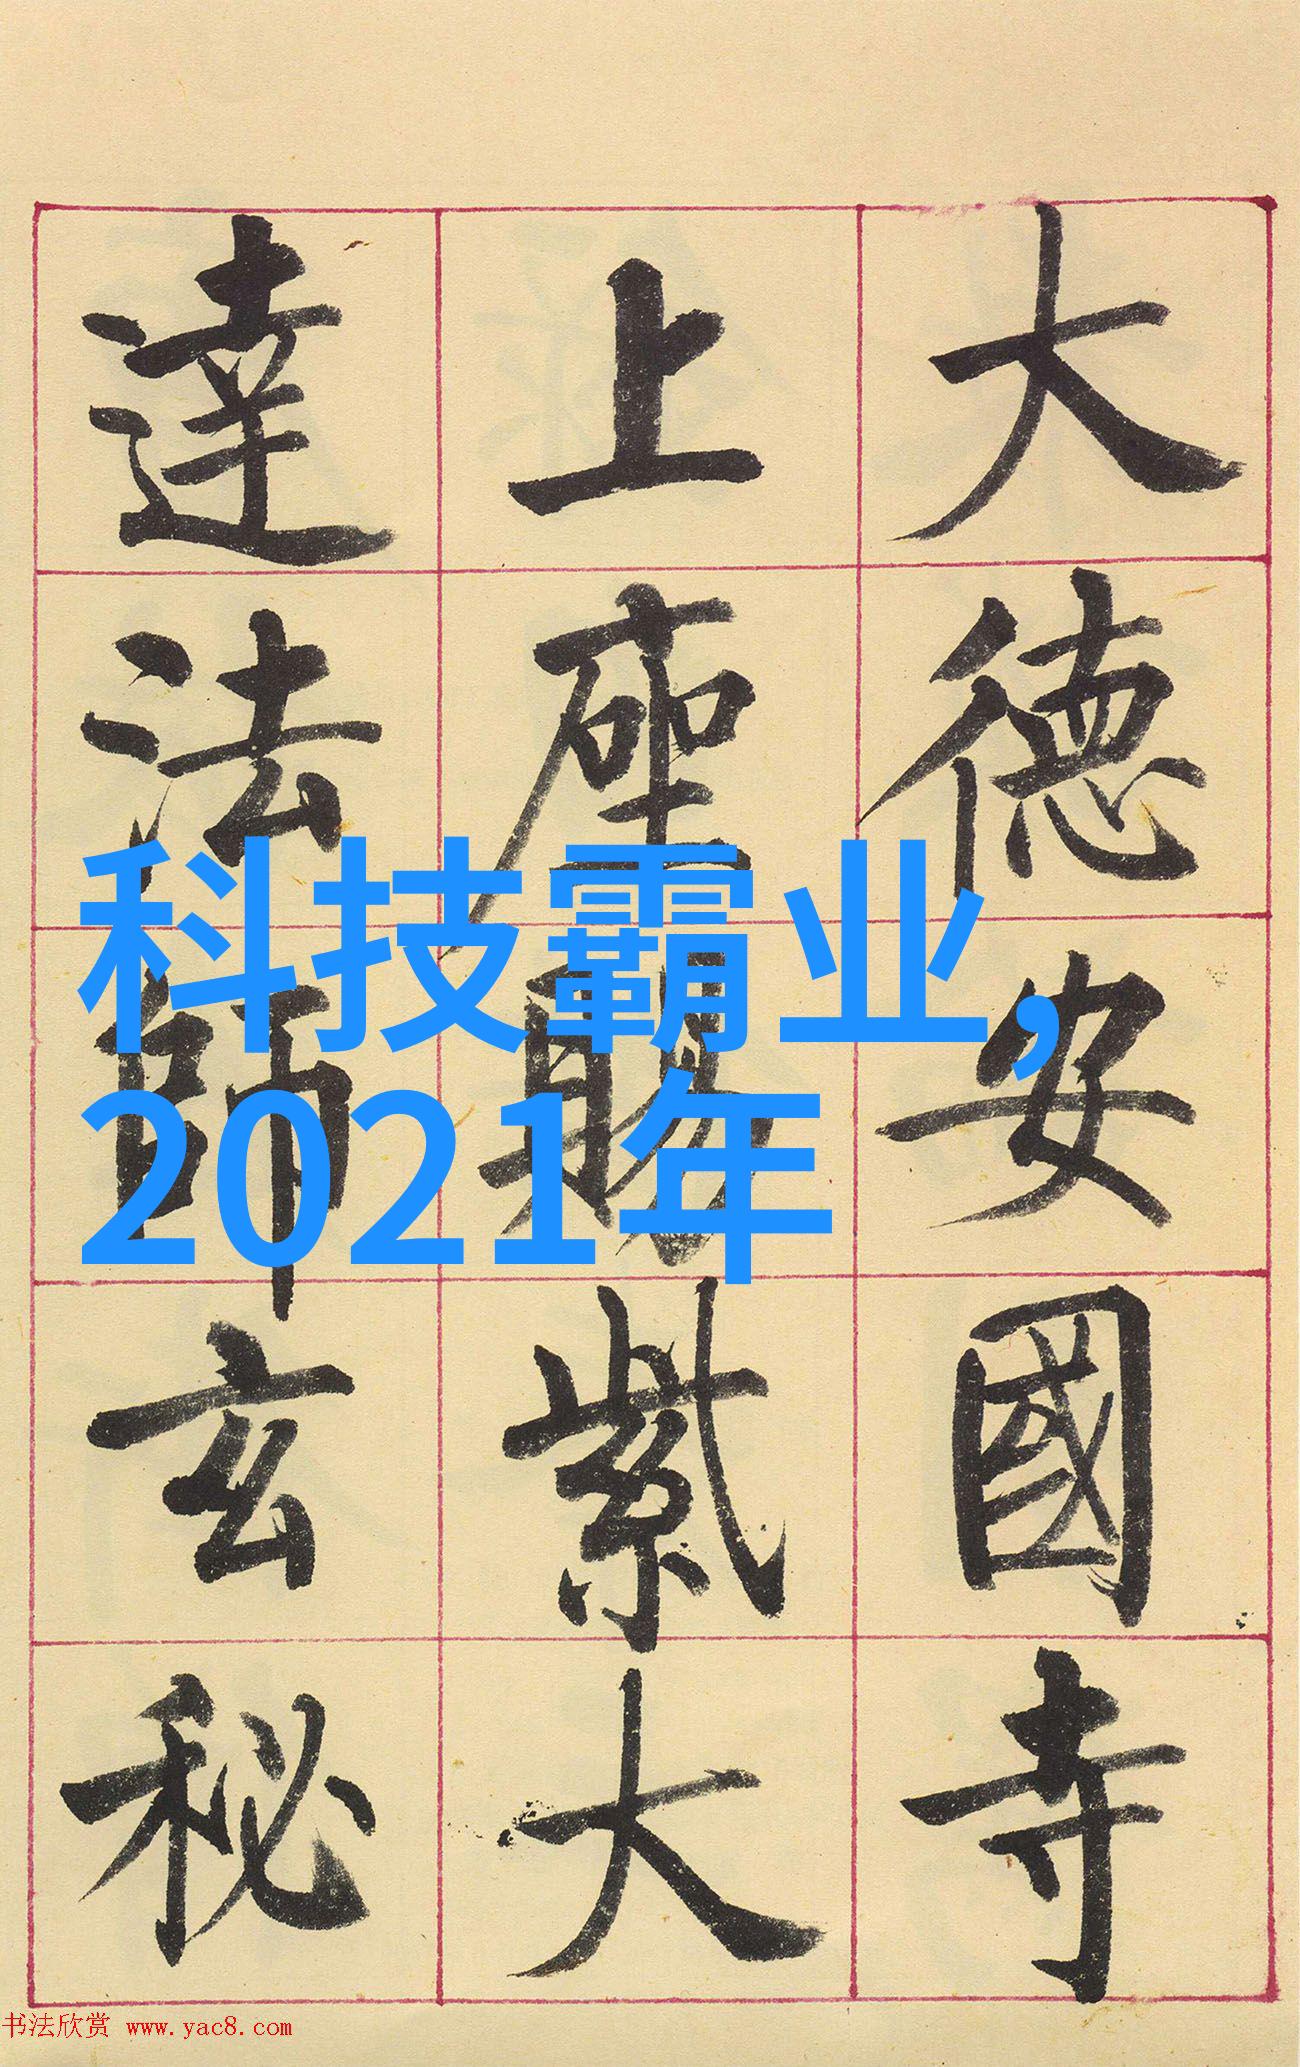 大德安國寺
上座賜紫大
達法師玄秘
科技霸业,
2021年
书法欣赏 www.yac8.com